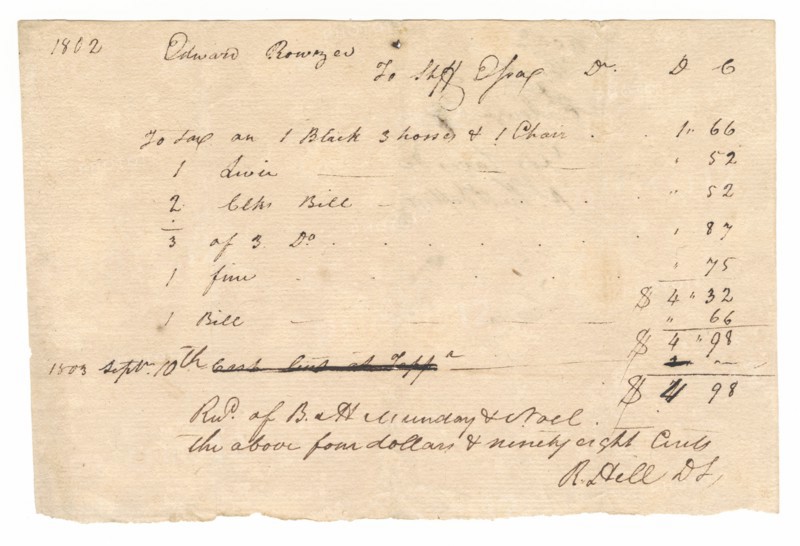 1802 Edward Rowzee
To Shff Essex Dr. D C
To tax on 1 Black 3 horses & 1 Chair . . 1 " 66
1 " 52
2 Clks Bill " 52
3 of 3 Do . . . . . " 87
1 fine . . . . . " 75
$ 4 " 32
1 Bill " 66
$ 4 " 98
1803 Septr. 10th Cash
$ 4 98
Recd. of B. & H Munday & Noel.
the above four dollars & ninety eight Cents
R. Hill DS